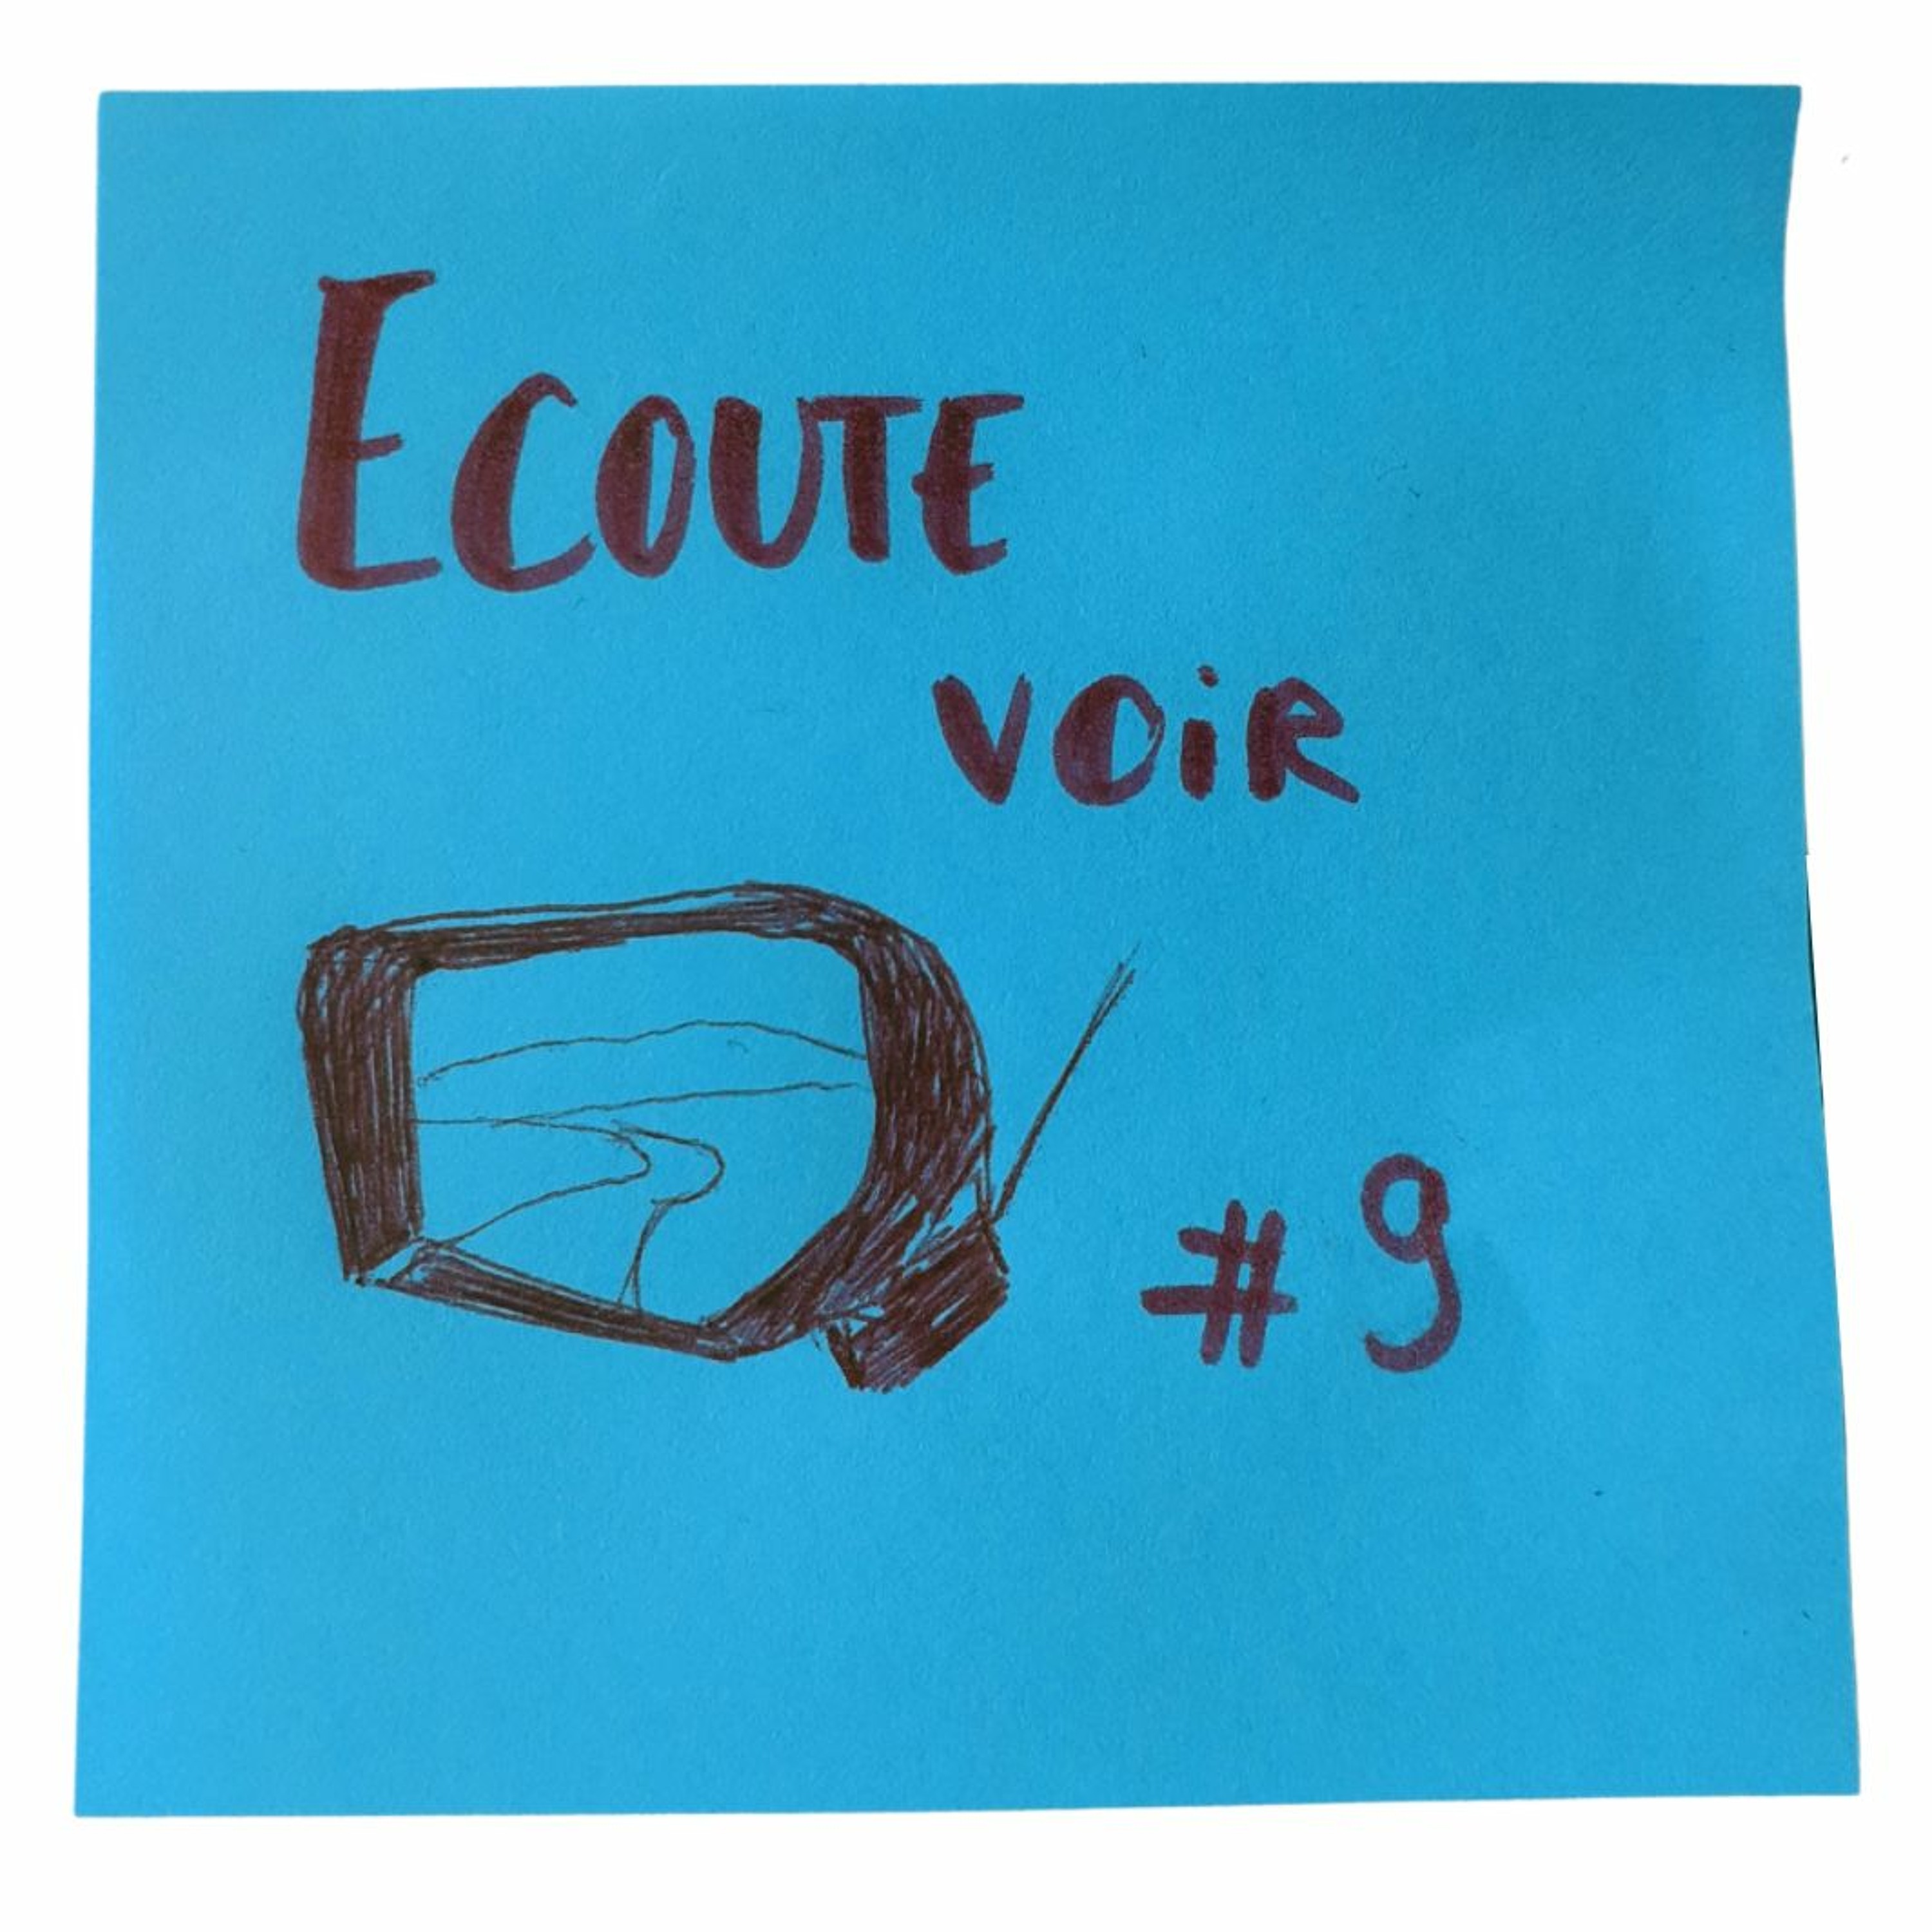 ECOUTE
VOiR
#9